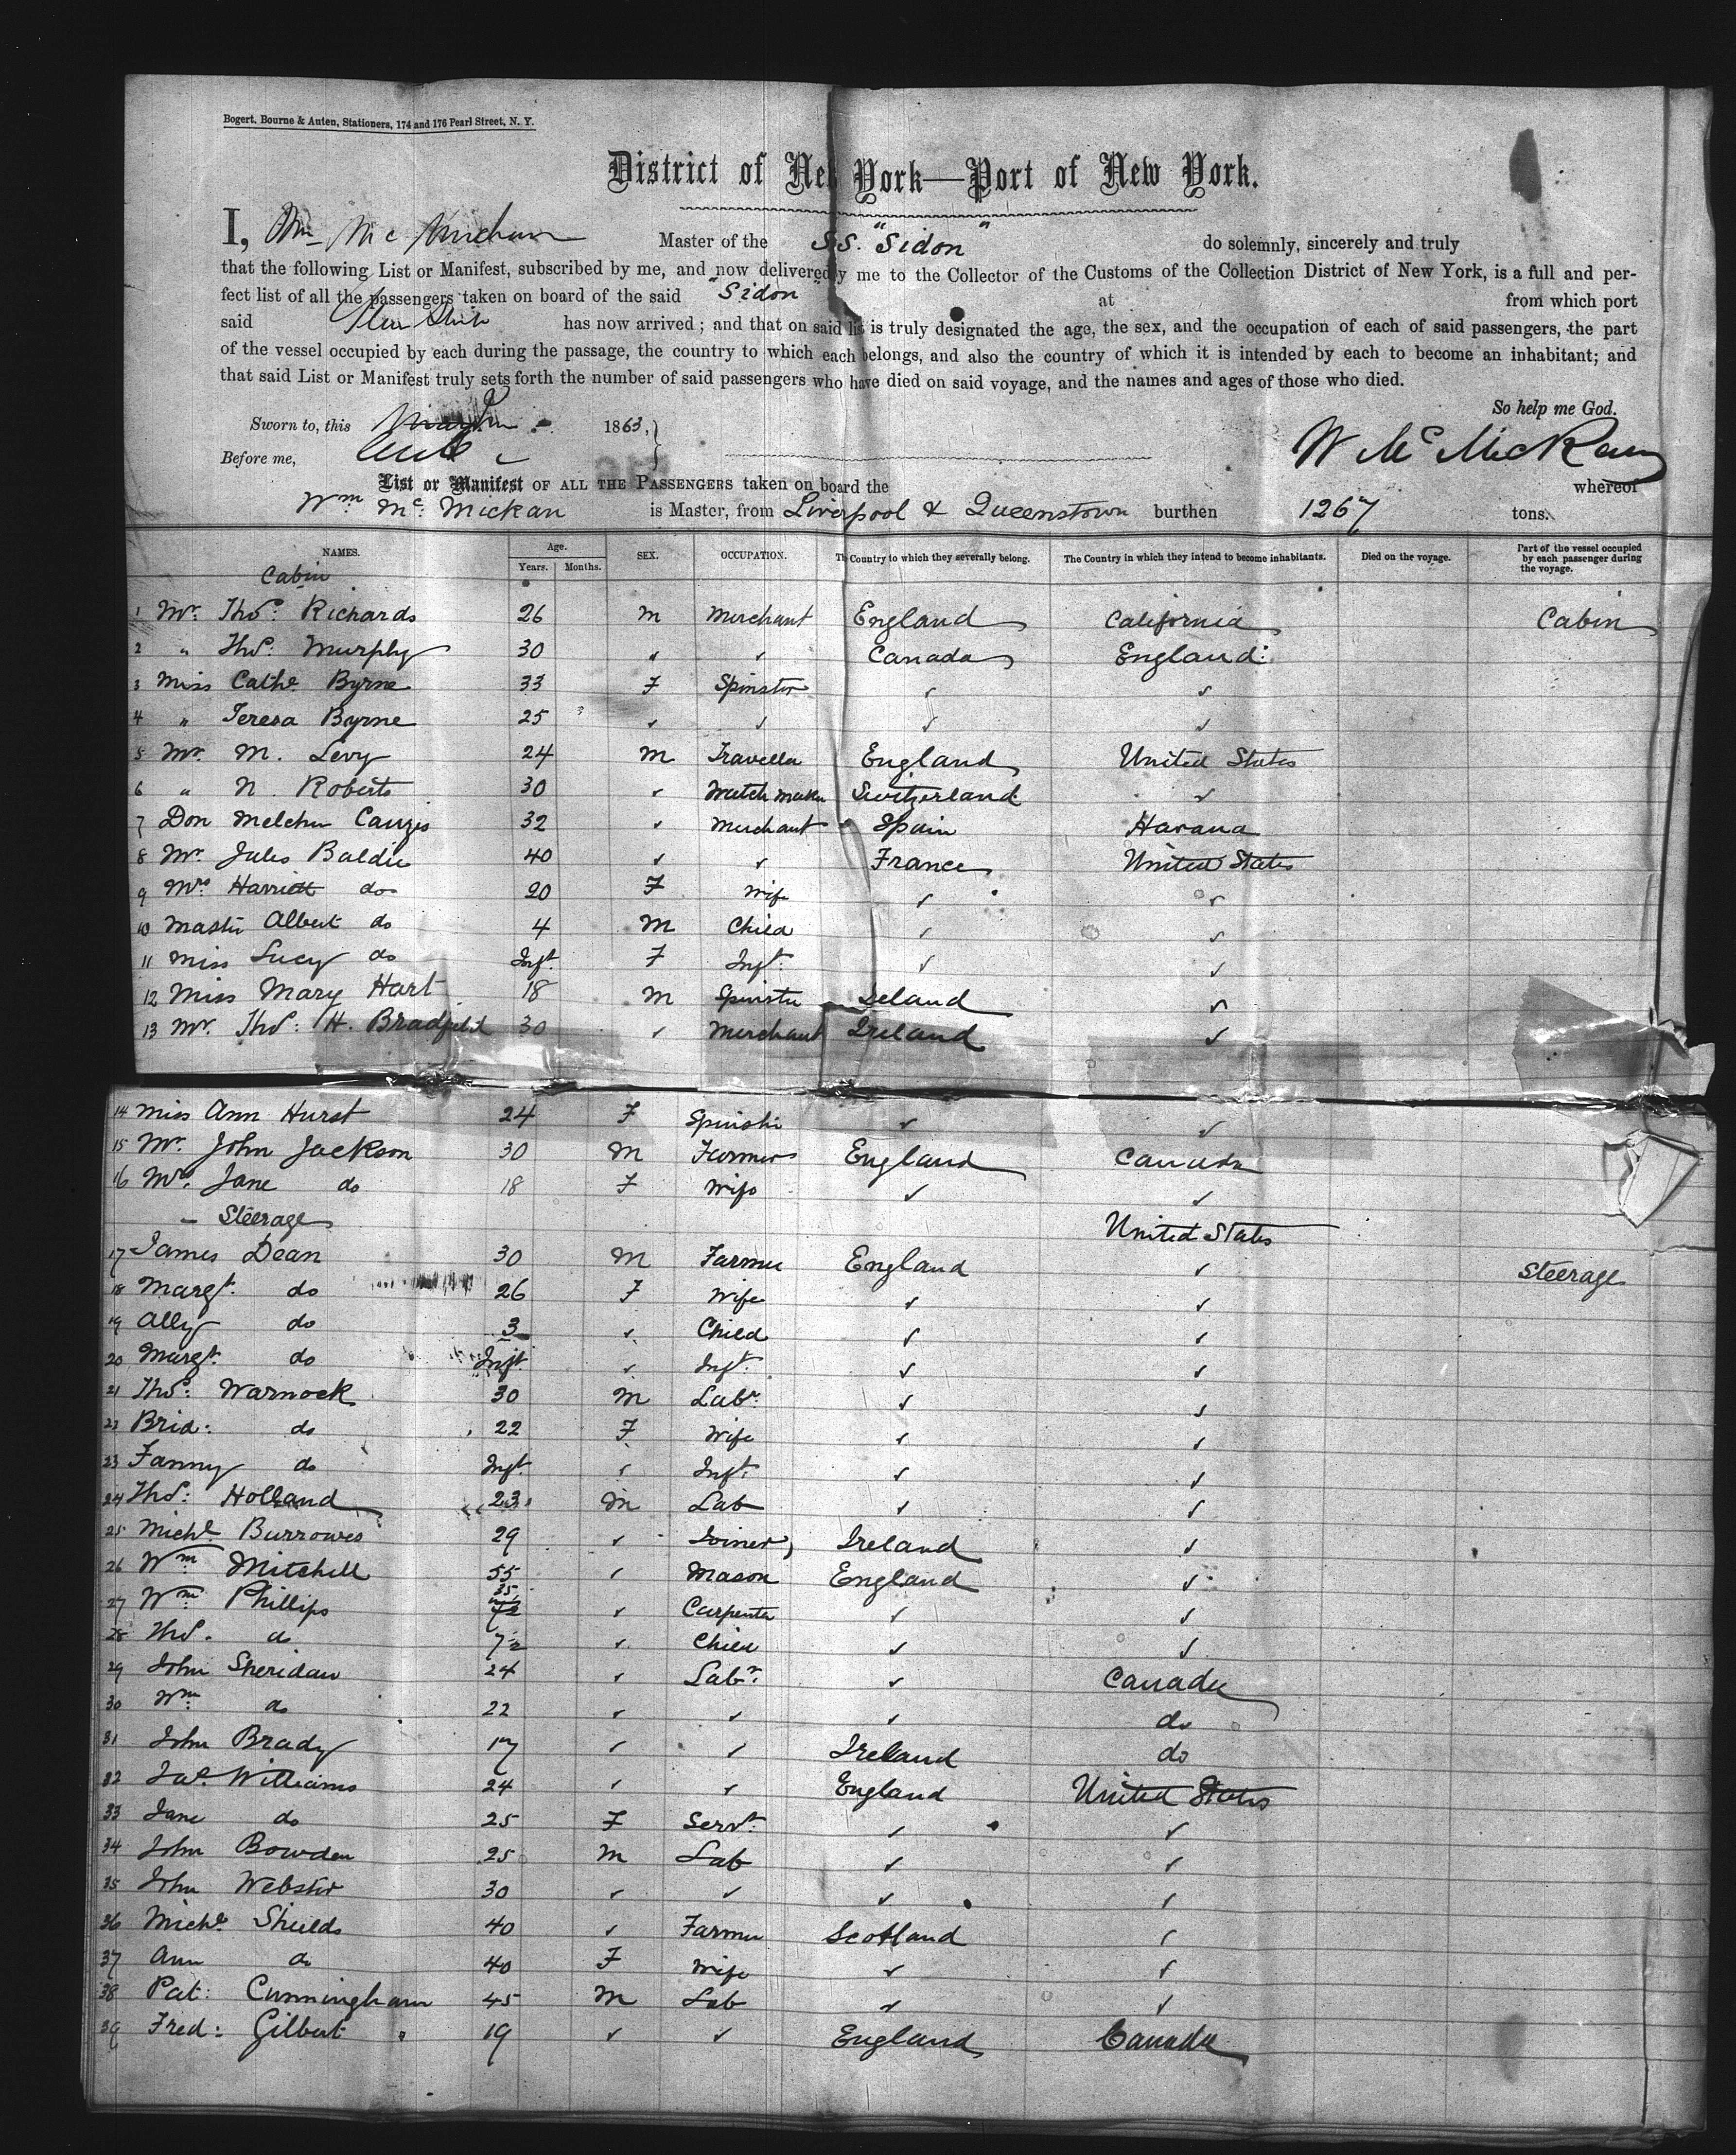 Bogert, Bourne & Auten, Stationers, 174 and 176 Pearl Street, N. Y.
District of New York—Port of New York.
I, Wm Mc Master of the S.S. "Sidon" do solemnly, sincerely and truly
that the following List or Manifest, subscribed by me, and now delivered by me to the Collector of the Customs of the Collection District of New York, is a full and per-
fect list of all the passengers taken on board of the said "Sidon" at from which port
said has now arrived; and that on said list is truly designated the age, the sex, and the occupation of each of said passengers, the part
of the vessel occupied by each during the passage, the country to which each belongs, and also the country of which it is intended by each to become an inhabitant; and
that said List or Manifest truly sets forth the number of said passengers who have died on said voyage, and the names and ages of those who died.
So help me God.
Sworn to, this 1863,
Before me,
W Mc Mickan
List or Manifest OF ALL THE PASSENGERS taken on board the whereof
Wm Mc Mickan is Master, from Liverpool & Queenstown burthen 1267 tons.
NAMES. Age. Years. Months. SEX. OCCUPATION. The Country to which they severally belong. The Country in which they intend to become inhabitants. Died on the voyage. Part of the vessel occupied by each passenger during the voyage.
Cabin
1 Mr. Thos. Richards 26 M Merchant England California Cabin
2 " Thos. Murphy 30 " ✓ Canada England
3 Miss Cathe Byrne 33 F Spinster ✓ ✓
4 " Teresa Byrne 25 ✓ ✓ ✓ ✓
5 Mr. M. Levy 24 M Traveller England United States
6 " N. Roberts 30 ✓ Watch maker Switzerland ✓
7 Don Melchor 32 ✓ Merchant Spain Havana
8 Mr. Jules Baldie 40 ✓ ✓ France United States
9 Mrs Harriett do 20 F Wife ✓ ✓
10 Master Albert do 4 M Child ✓ ✓
11 Miss Lucy do Inft. F Inft. ✓ ✓
12 Miss Mary Hart 18 M Spinster Ireland ✓
13 Mr. Thos: H. Bradfield 30 ✓ Merchant Ireland ✓
14 Miss Ann Hurst 24 F Spinster ✓ ✓
15 Mr. John Jackson 30 M Farmer England Canada
16 Mrs. Jane do 18 F Wife ✓ ✓
- Steerage United States
17 James Dean 30 M Farmer England ✓ Steerage
18 Margt. do 26 F Wife ✓ ✓
19 Ally do 3 ✓ Child ✓ ✓
20 Margt. do Inft. ✓ Inft. ✓ ✓
21 Thos: Warnock 30 M Labr. ✓ ✓
22 Brid: do 22 F Wife ✓ ✓
23 Fanny do Inft. ✓ Inft. ✓ ✓
24 Thos: Holland 23 M Lab ✓ ✓
25 Michl. Burrowes 29 ✓ Joiner Ireland ✓
26 Wm Mitchell 55 ✓ Mason England ✓
27 Wm Phillips 35 ✓ Carpenter ✓ ✓
28 Thos. do 7½ ✓ Child ✓ ✓
29 John Sheridan 24 ✓ Labr. ✓ Canada
30 Wm do 22 ✓ ✓ ✓ do
31 John Brady 17 ✓ ✓ Ireland do
32 Jas. Williams 24 ✓ ✓ England United States
33 Jane do 25 F Servt. ✓ ✓
34 John Bowden 25 M Lab ✓ ✓
35 John Webster 30 ✓ ✓ ✓ ✓
36 Michl. Shields 40 ✓ Farmer Scotland ✓
37 Ann do 40 F Wife ✓ ✓
38 Pat: Cunningham 45 M Lab ✓ ✓
39 Fred: Gilbert 19 ✓ ✓ England Canada